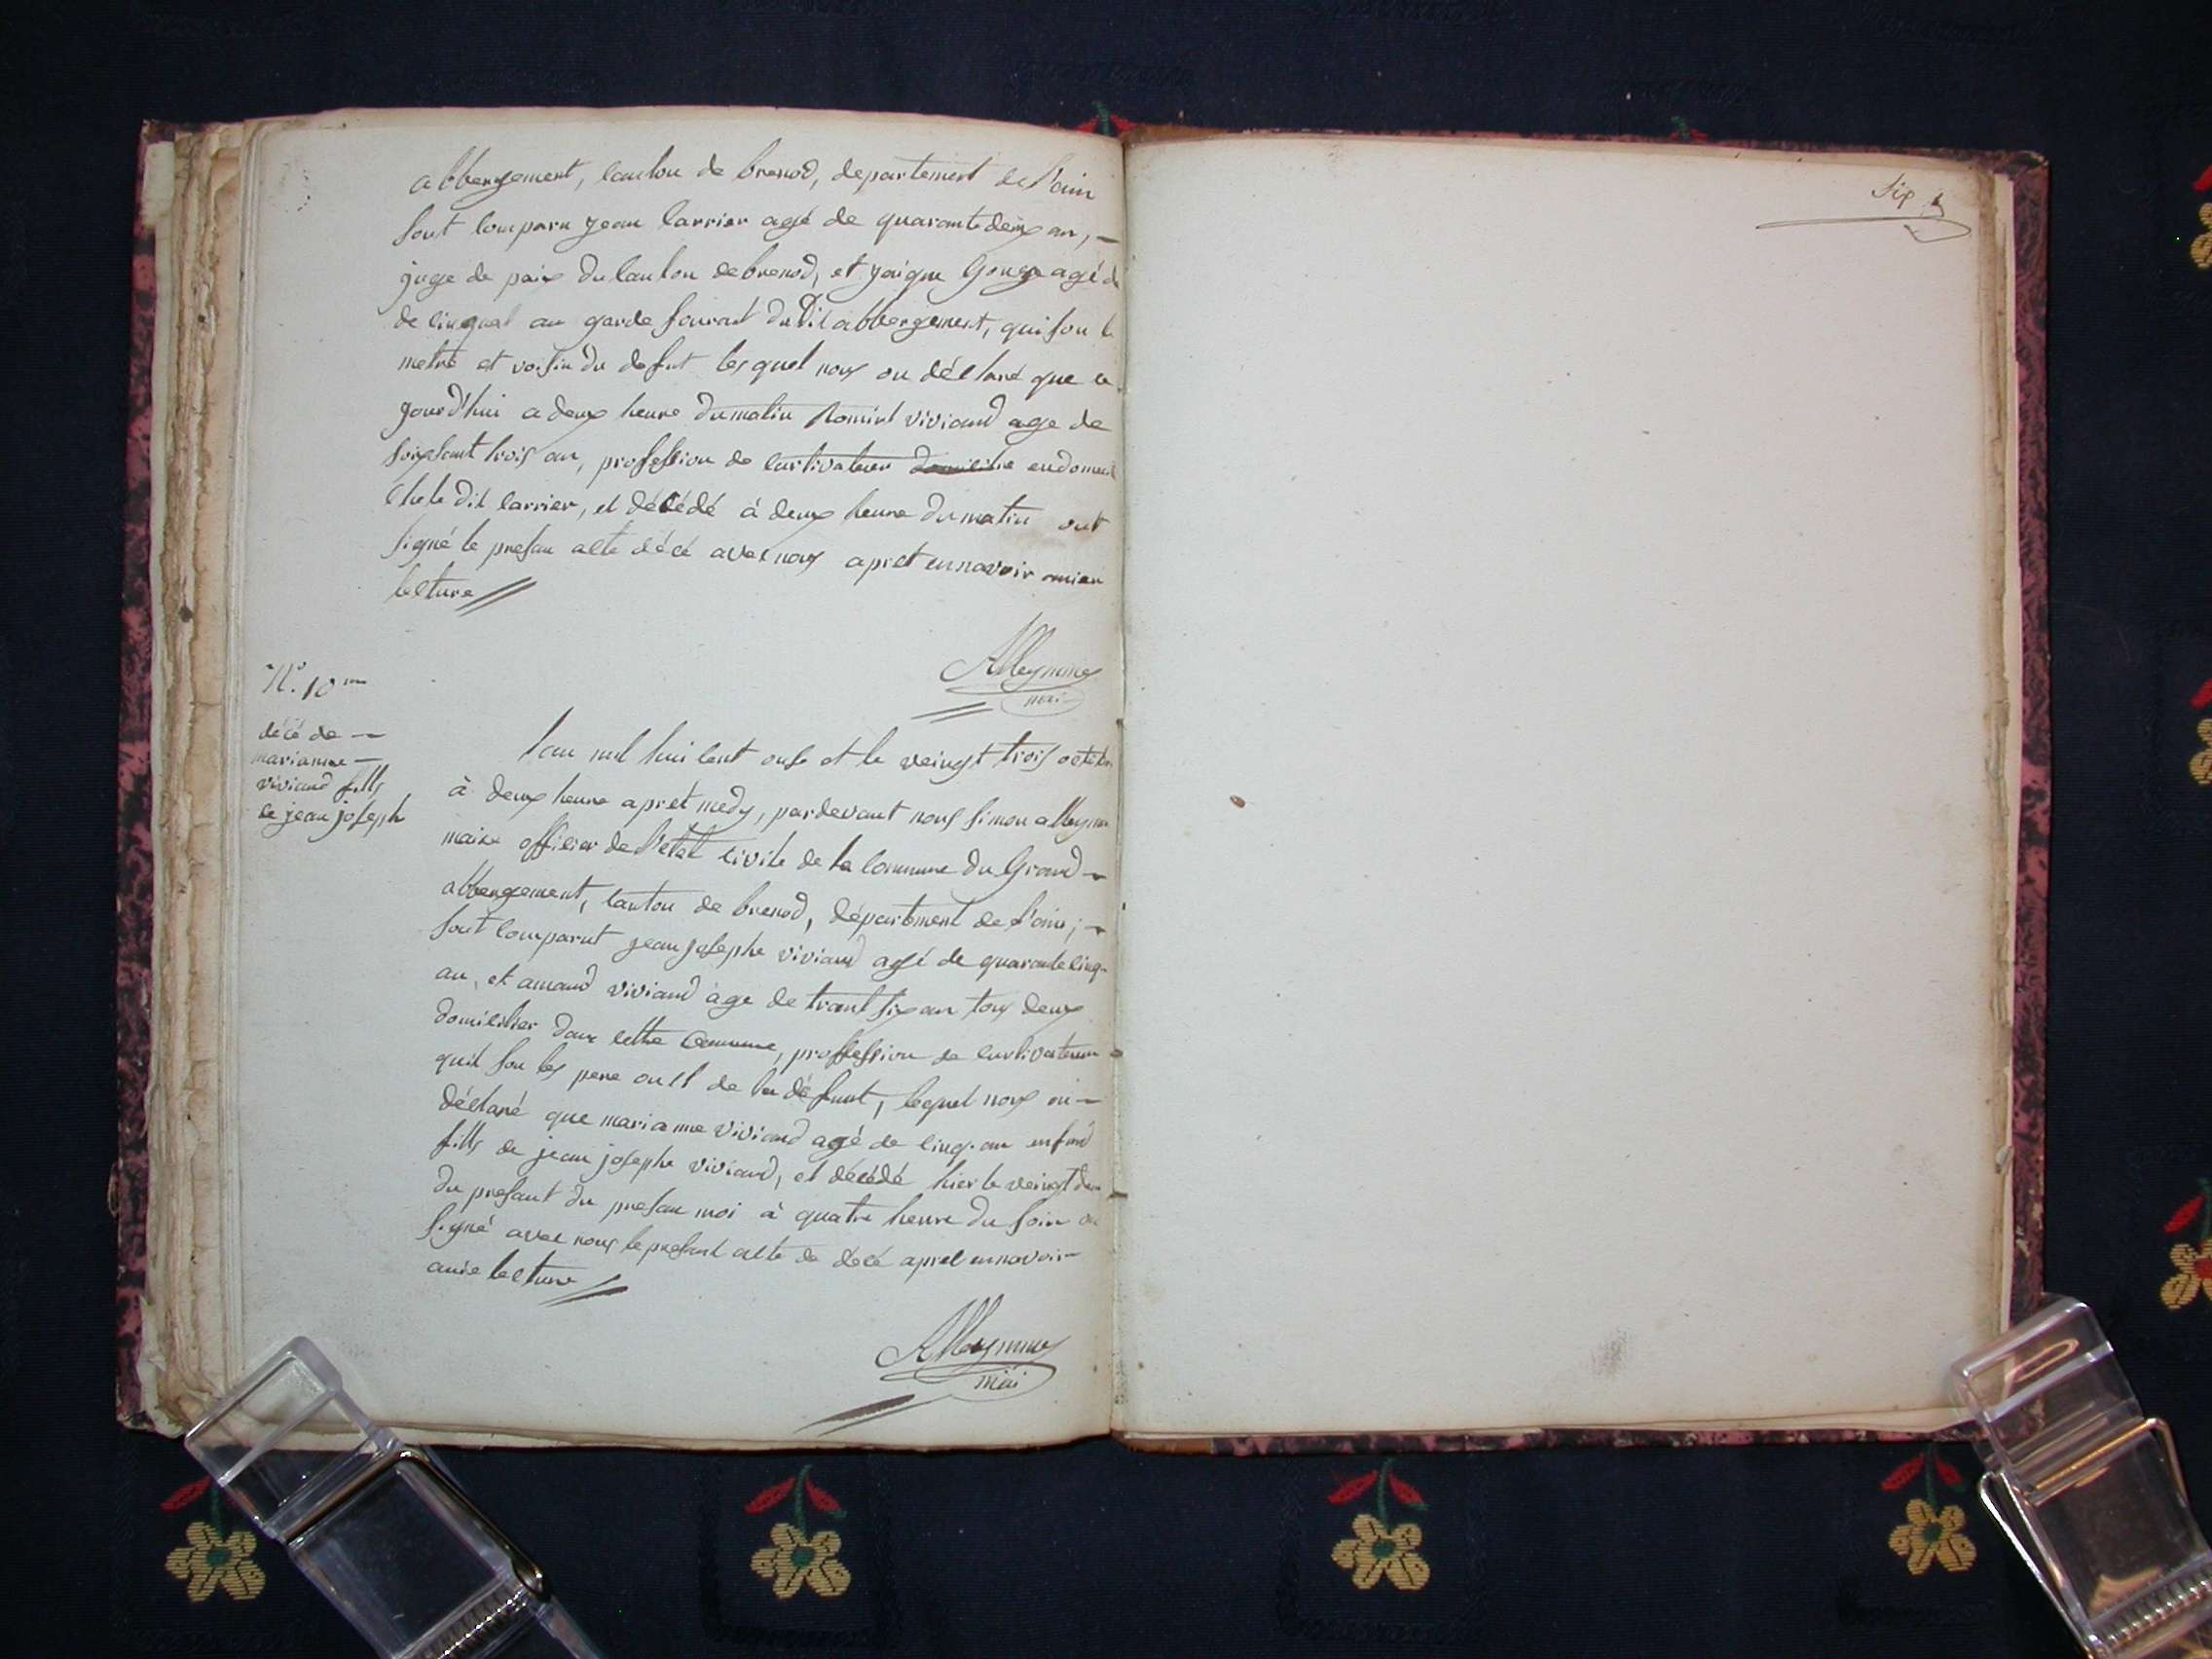 abbergement, canton de brenod, departement de l'ain
sont comparu jean Carrier agé de quarante deux an, —
juge de paix du Canton de brenod, et jaique Gouge agé de
de cinquat an garde forait du Dit abbergement, qui son le
metre et voisin du defut lesquel nous on déclaré que ce
jourd'hui a deux heure du matin viviand age de
soixsant trois an, profession de Curtivateur en domicil
Che le dit Carrier, et décédé à deux heure du matin ont
signé le presan acte décé avec nous apret ennavoir
lecture //
Alleynine
mai
N.º 10 me
décé de —
marianne —
viviand fills
de jean joseph
l'an mil hui cent onse et le veingt trois octobre
à deux heure apret medy, pardevant nous Simon alleynine
maire officier de l'etat civile de la Commune du Grand —
abbergement, Canton de brenod, département de l'ain ; —
sont Comparut jean josephe viviand agé de quarante cinq
an, et amand viviand age de trant six an tous deux
domicilier dans cette Commune, proffession de Curtivateur
quil son les pere oncl de la défunt, lequel nous on —
déclaré que marianne viviand agé de cinq an enfand
fills de jean josephe viviand, et décédé hier le veingt deux
du presant du presan moi à quatre heure du soir on
signé avec nous le presant acte de décé apret ennavoir —
ouie lecture //
Alleynine
mai
Six